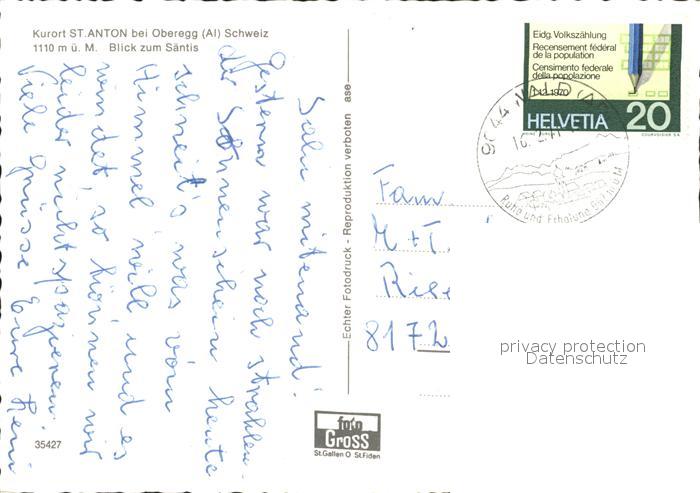 Kurort ST. ANTON bei Oberegg (AI) Schweiz
1110 m ü. M. Blick zum Säntis
Salü mitenand!
Gestern war noch strahlen-
der Sonnenschein heute
schneit's was vom
Himmel will und es
windet, so können wir
leider nicht spazieren.
Viele Grüsse Eure
35427
Echter Fotodruck - Reproduktion verboten ase
foto
Gross
St.Gallen O St.Fiden
Eidg. Volkszählung
Recensement fédéral
de la population
Censimento federale
della popolazione
1.12.1970
HELVETIA 20
COURVOISIER SA
9044 WALD (AR)
Ruhe und Erholung 962 m ü M
Fam.
M + T.
8172
privacy protection
Datenschutz